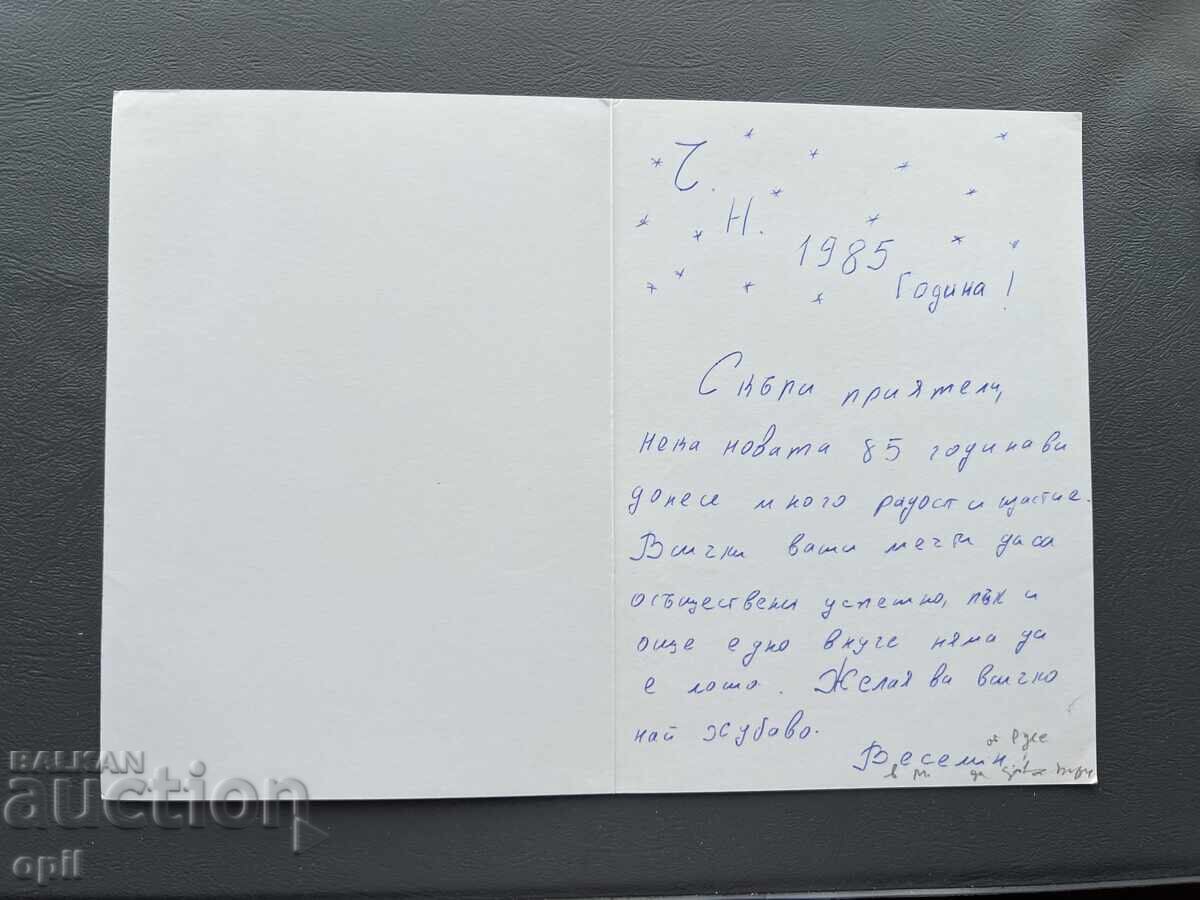 Ч.
Н.
1985
Година!
Скъпи приятели,
нека новата 85 година ви
донесе много радост и щастие.
Всички ваши мечти да са
осъществени успешно, пък и
още едно внуче няма да
е лошо. Желая ви всичко
най хубаво.
от Русе
Веселин
BALKAN
auction
opil